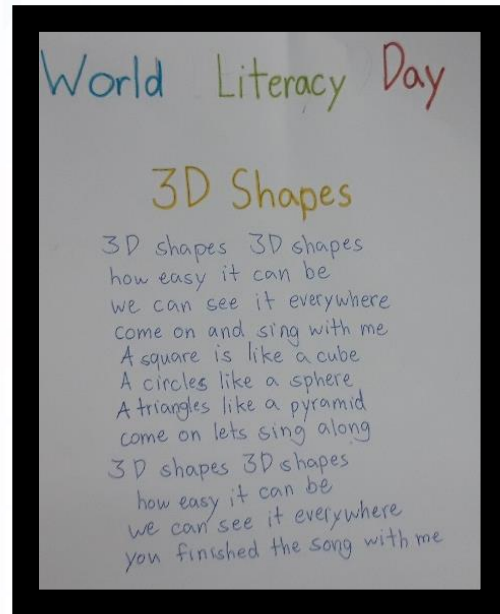 World Literacy Day
3D Shapes
3D shapes 3D shapes
how easy it can be
we can see it everywhere
come on and sing with me
A square is like a cube
A circles like a sphere
A triangles like a pyramid
come on lets sing along
3D shapes 3D shapes
how easy it can be
we can see it everywhere
you finished the song with me